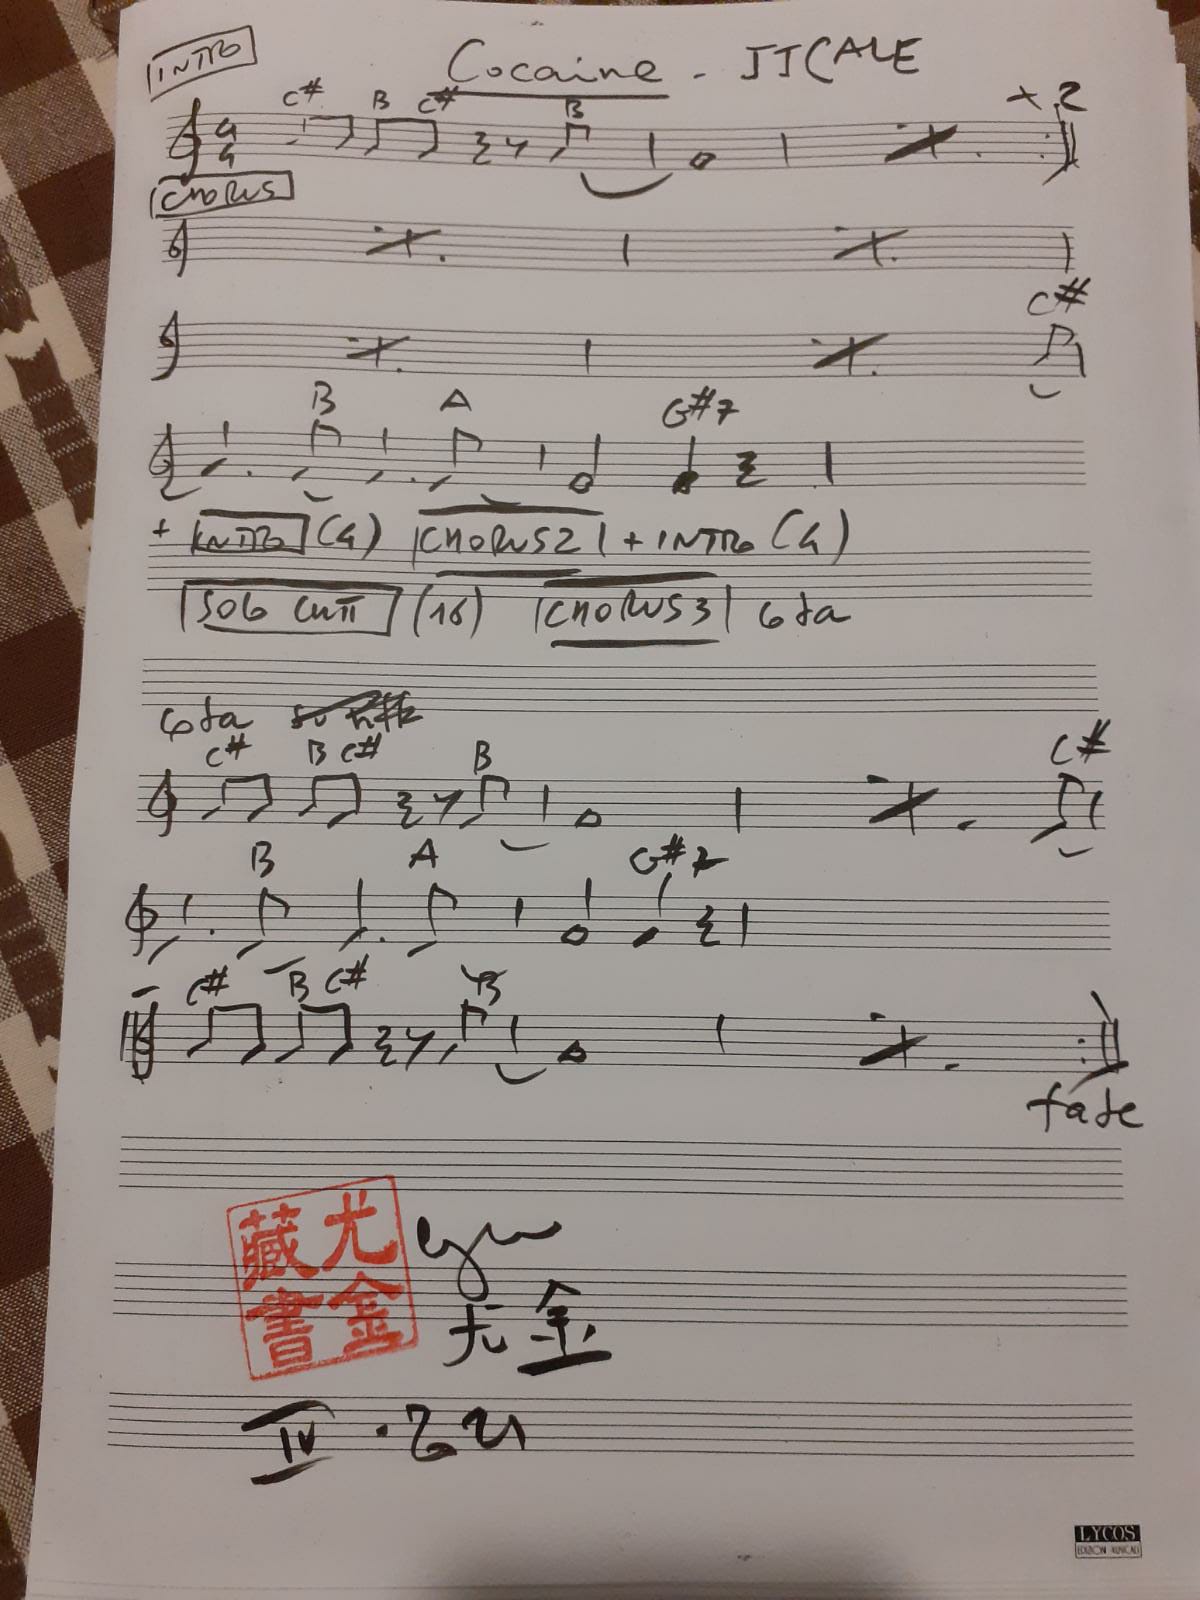 INTRO
Cocaine - JJ CALE
C# B C# B x 2
4
4
CHORUS
C#
B A G#7
+ INTRO (4) CHORUS 2 + INTRO (4)
SOLO (16) CHORUS 3 Coda
Coda
C# B C# B C#
B A G#7
C# B C# B
fade
尤金
藏書
尤金
IV . 221
LYCOS
EDIZIONI MUSICALI